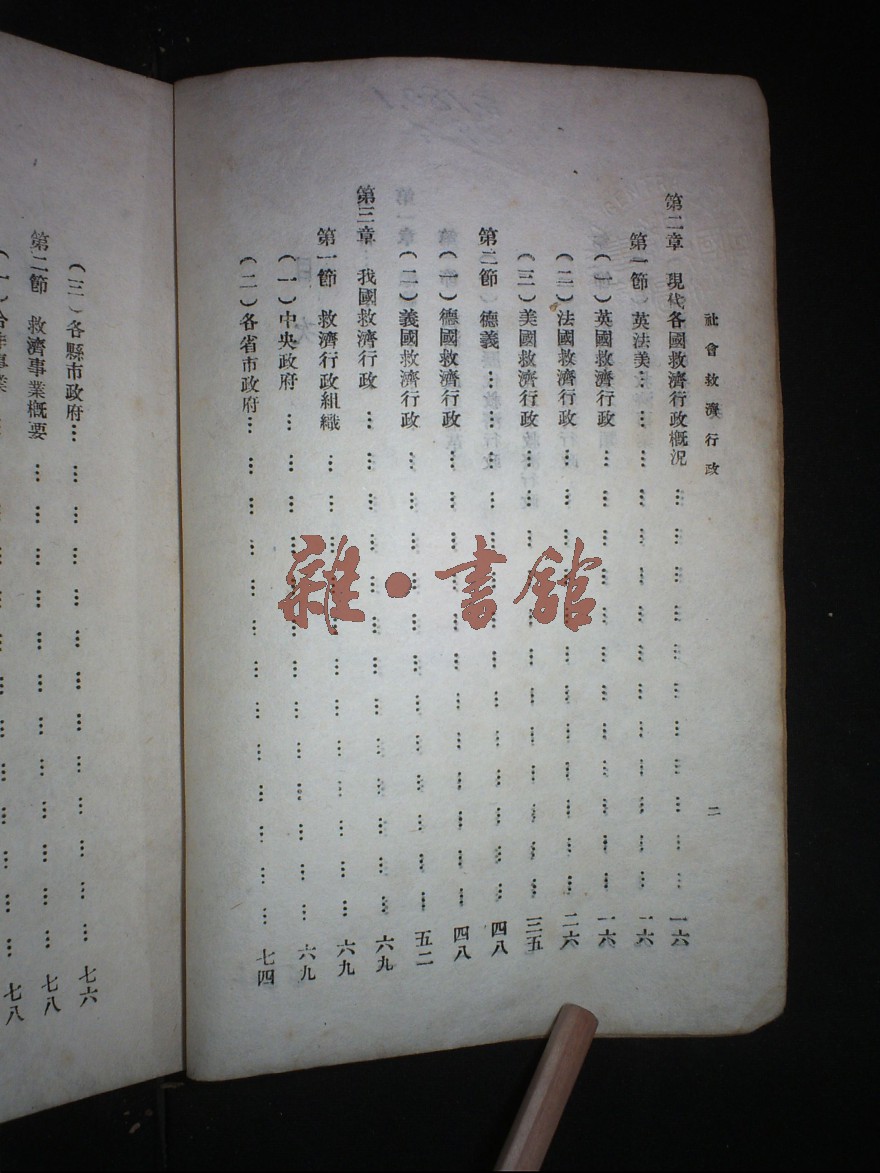 社會救濟行政
二
第二章 現代各國救濟行政概況 … … … … … … … … … … … 一六
第一節 英法美 … … … … … … … … … … … … … 一六
(一)英國救濟行政 … … … … … … … … … … … … 一六
(二)法國救濟行政 … … … … … … … … … … … … 二六
(三)美國救濟行政 … … … … … … … … … … … … 三五
第二節 德義 … … … … … … … … … … … … … … 四八
(一)德國救濟行政 … … … … … … … … … … … … 四八
(二)義國救濟行政 … … … … … … … … … … … … 五二
第三章 我國救濟行政 … … … … … … … … … … … … … 六九
第一節 救濟行政組織 … … … … … … … … … … … … 六九
(一)中央政府 … … … … … … … … … … … … … 六九
(二)各省市政府 … … … … … … … … … … … … … 七四
(三)各縣市政府 … … … … … … … … … … … … … 七六
第二節 救濟事業概要 … … … … … … … … … … … … 七八
… … … … … … … … … … … … 七八
雜·書館